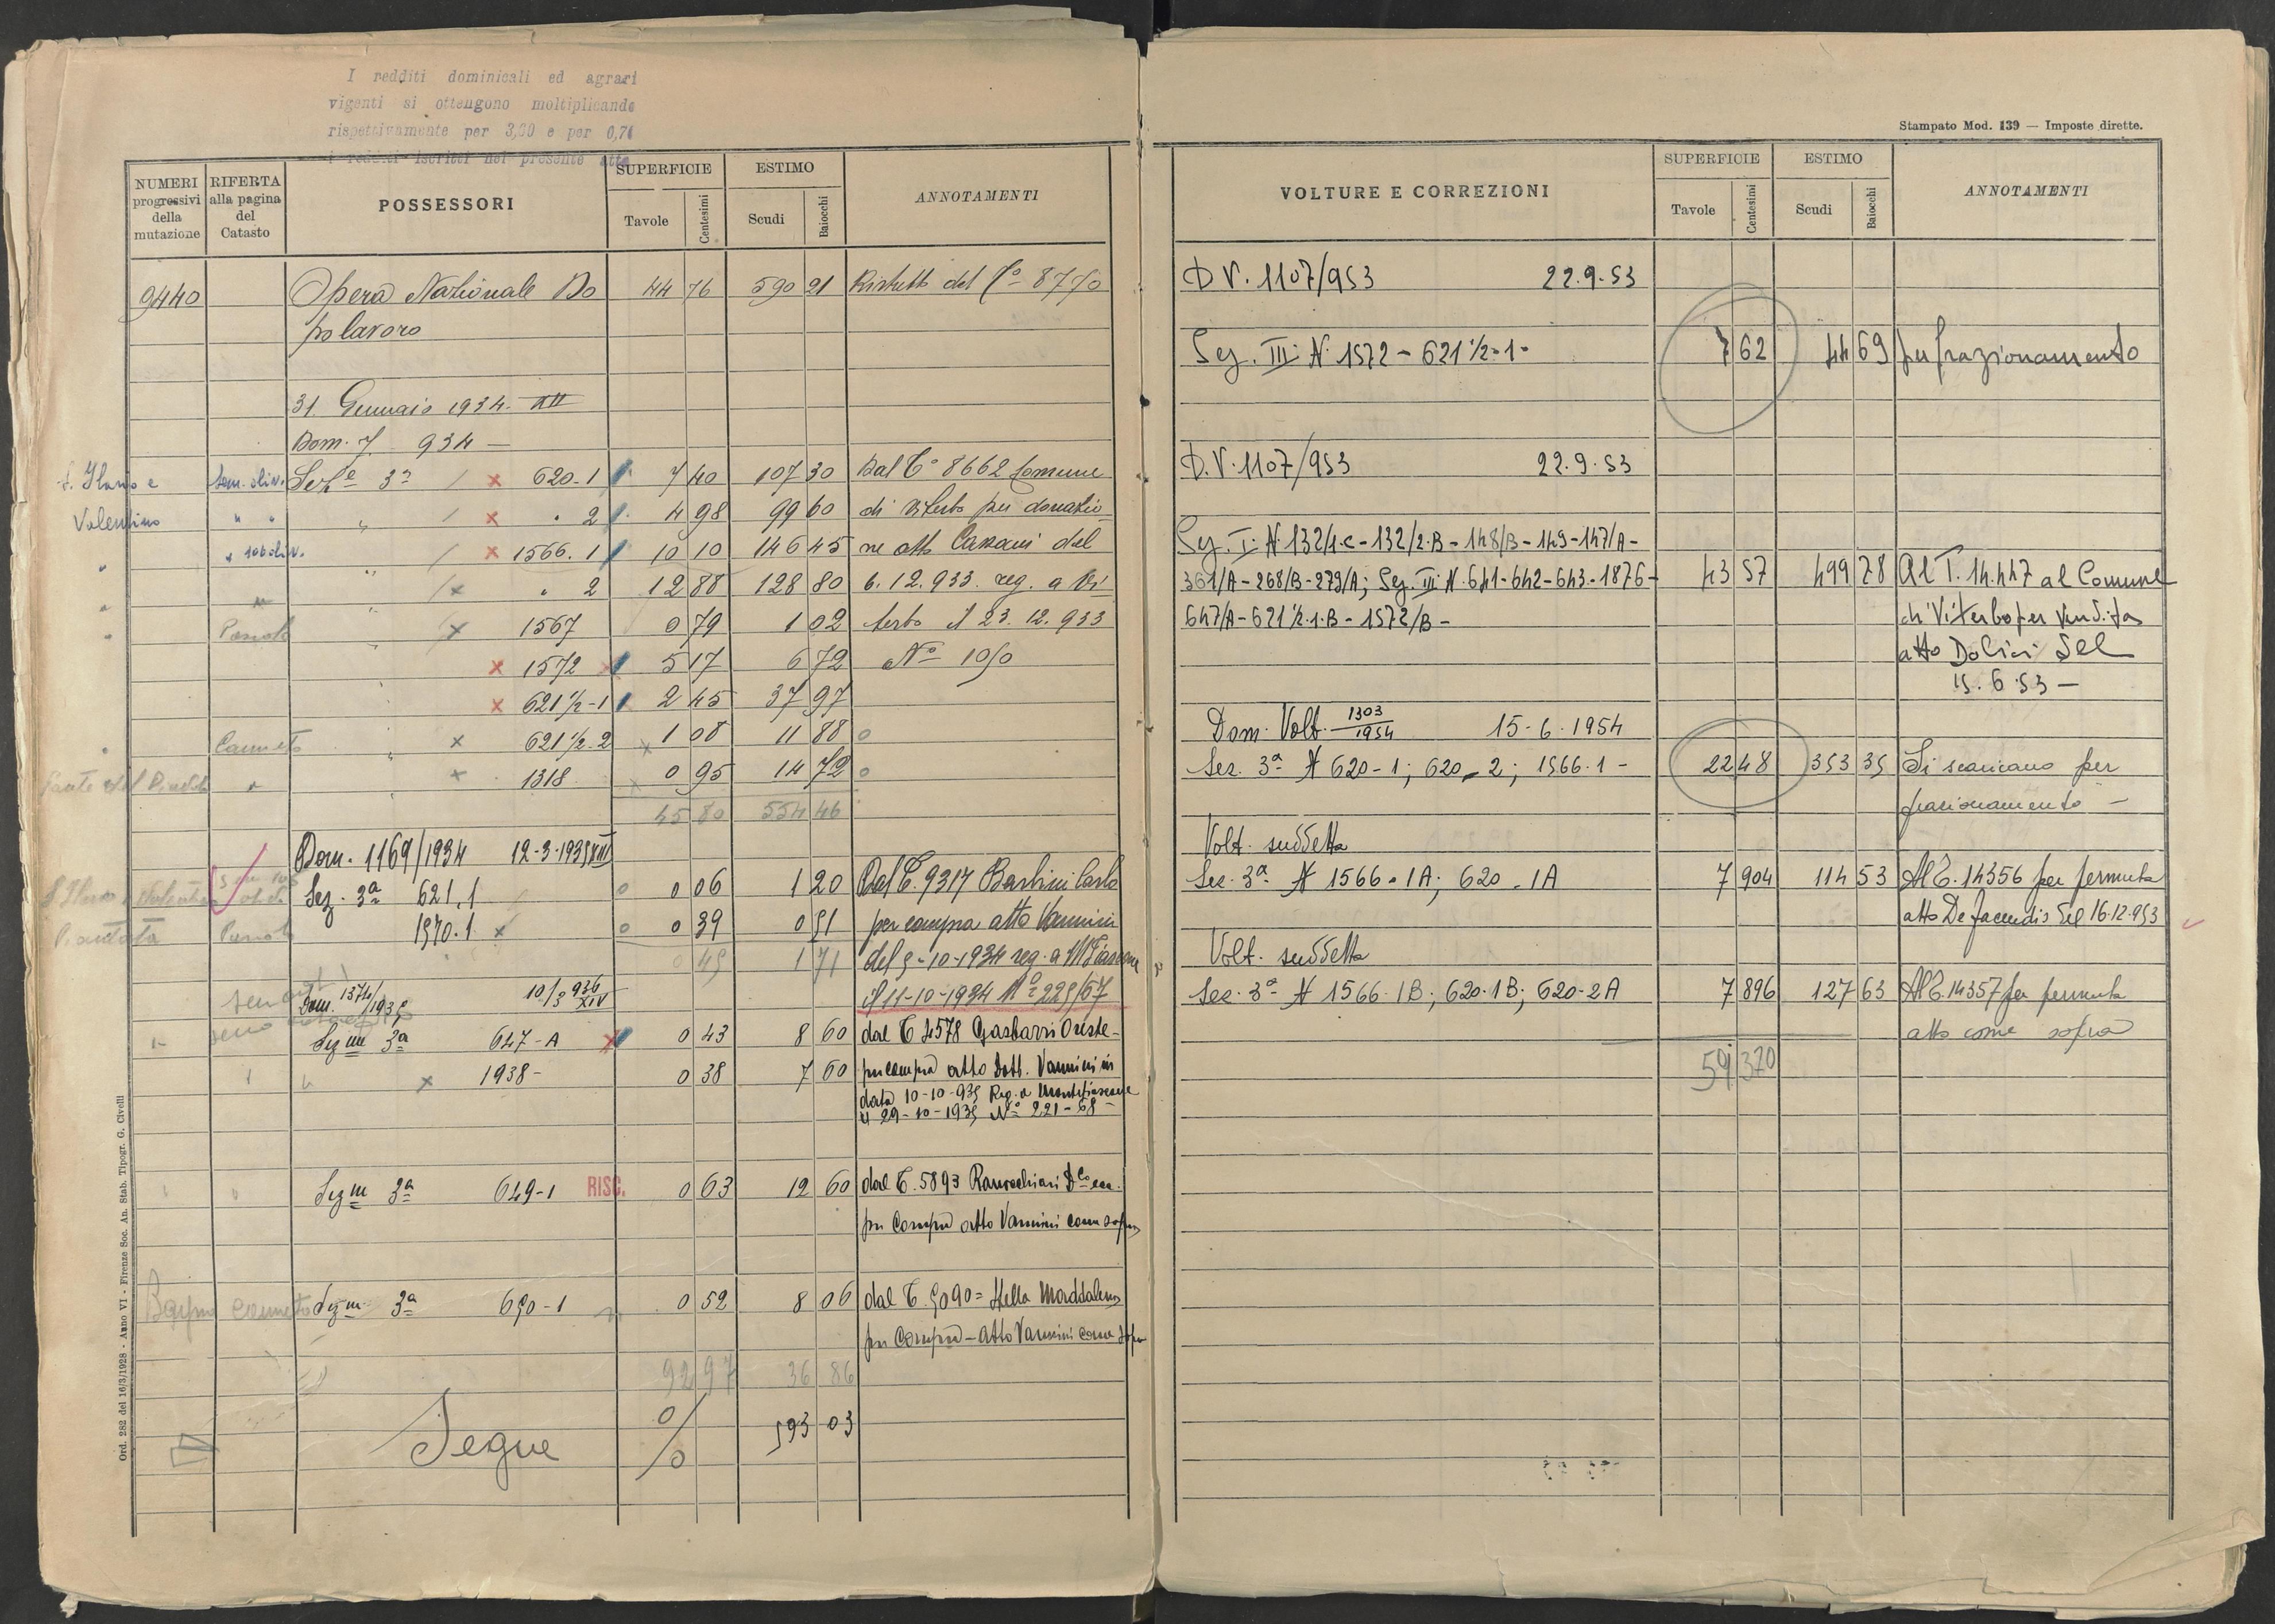 I redditi dominicali ed agrari
vigenti si ottengono moltiplicando
rispettivamente per 3,00 e per 0,70
i redditi iscritti nel presente atto
NUMERI progressivi della mutazione
RIFERTA alla pagina del Catasto
POSSESSORI
SUPERFICIE
Tavole Centesimi
ESTIMO
Scudi Baiocchi
ANNOTAMENTI
9440 Opera Nazionale Do 44 76 590 21 Ristretto del C.º 8770
polavoro
31 Gennaio 1934 XII
Dom. 7 934 —
S. Ilario e Sem. oliv. Sez.e 3ª / x 620.1 7 40 107 30 Dal C.º 8662 Comune
Valentino " " " / x " 2 4 98 99 60 di Viterbo per donazio
" " " / x 1566.1 10 10 146 45 ne atto Cassani del
" " " / x " 2 12 88 128 80 6.12.933 reg. a Vi
" Pascolo " x 1567 0 79 1 02 terbo il 23.12.933
" x 1572 5 17 6 72 Nº 1050
x 621 1/2-1 2 45 37 97
" Canneto " x 621 1/2.2 x 1 08 11 88 o
" " x 1318 x 0 95 14 72 o
45 80 554 46
Dom. 1169/1934 12-3-1935 XIII
Sez. 3ª 621.1 o 0 06 1 20 Dal C. 9317 Bertini Carlo
Piantata Pascolo 1570.1 x o 0 39 0 51 per compra atto Vannini
0 45 1 71 del 5-10-1934 reg. a M.Fiascone
il 11-10-1934 Nº 225/67
Dom. 1374/1935 10/3 936 XIV
Sezne 3ª 647-A x 0 43 8 60 dal C 4578 Gasbarri Oreste-
" x 1938- 0 38 7 60 per compra atto Dott. Vannini in
data 10-10-935 Reg. a Montefiascone
il 29-10-1935 Nº 221-68-
Sezne 3ª 649-1 RISC. 0 63 12 60 dal C. 5893
per Compra atto Vannini come sopra
Bagno canneto Sezne 3ª 650-1 0 52 8 06 dal C. 5090= Stella Maddalena
per Compra - Atto Vannini come sopra
92 97 36 86
Segue o/o 593 03
Ord. 282 del 16/3/1928 - Anno VI - Firenze Soc. An. Stab. Tipogr. G. Civelli
Stampato Mod. 139 — Imposte dirette.
VOLTURE E CORREZIONI
SUPERFICIE
Tavole Centesimi
ESTIMO
Scudi Baiocchi
ANNOTAMENTI
D V. 1107/953 22.9.53
Sez. III N. 1572 - 621 1/2-1- 7 62 44 69 per frazionamento
D.V. 1107/953 22.9.53
Sez. I. N. 132/1.c - 132/2.B - 148/B - 149 - 147/A -
361/A - 268/B - 279/A; Sez. III N. 641-642-643-1876- 43 57 499 78 Al T. 14.447 al Comune
647/A - 621 1/2.1.B - 1572/B - di Viterbo per vendita
atto Dolcini del
15.6.53 —
Dom. Volt. 1303/1954 15-6-1954
Sez. 3ª N 620-1; 620-2; 1566.1 - 22 48 353 35 Si scaricano per
frazionamento —
Volt. suddetta
Sez. 3ª N 1566-1A; 620-1A 7 904 114 53 Al C. 14356 per permuta
atto De Facendis del 16.12.953
Volt. suddetta
Sez. 3ª N 1566-1B; 620-1B; 620-2A 7 896 127 63 Al C. 14357 per permuta
atto come sopra
59 370